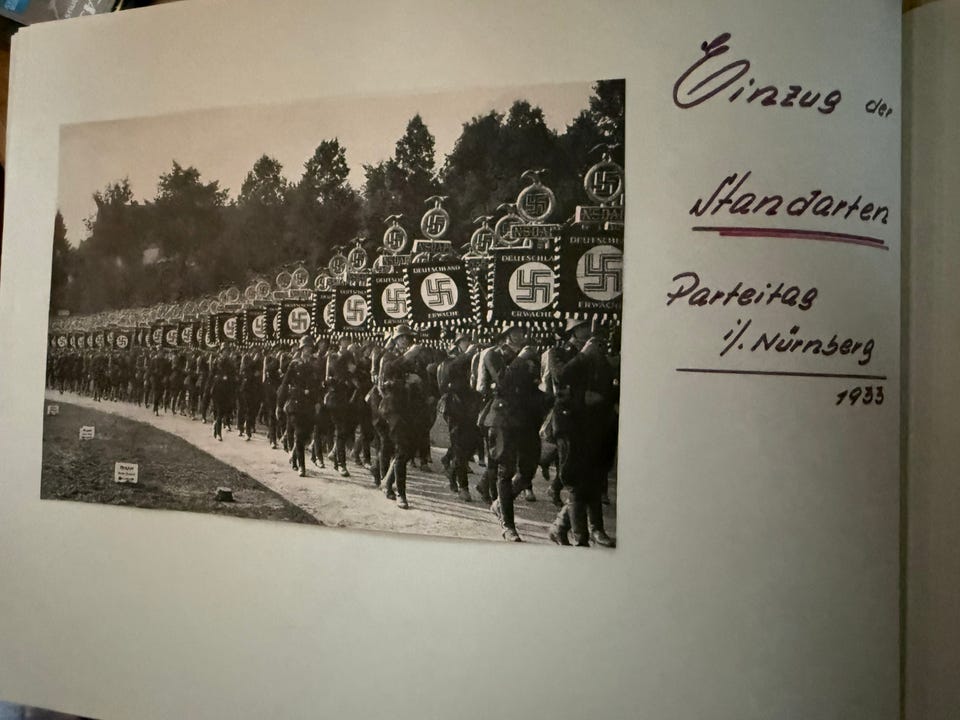 Einzug der
Standarten
Parteitag
i/. Nürnberg
1933
NSDAP
NSDAP
DEUTSCHLAND
ERWACHE
DEUTSCHLA
ERWACHE
DEUTSCHLA
ERWACHE